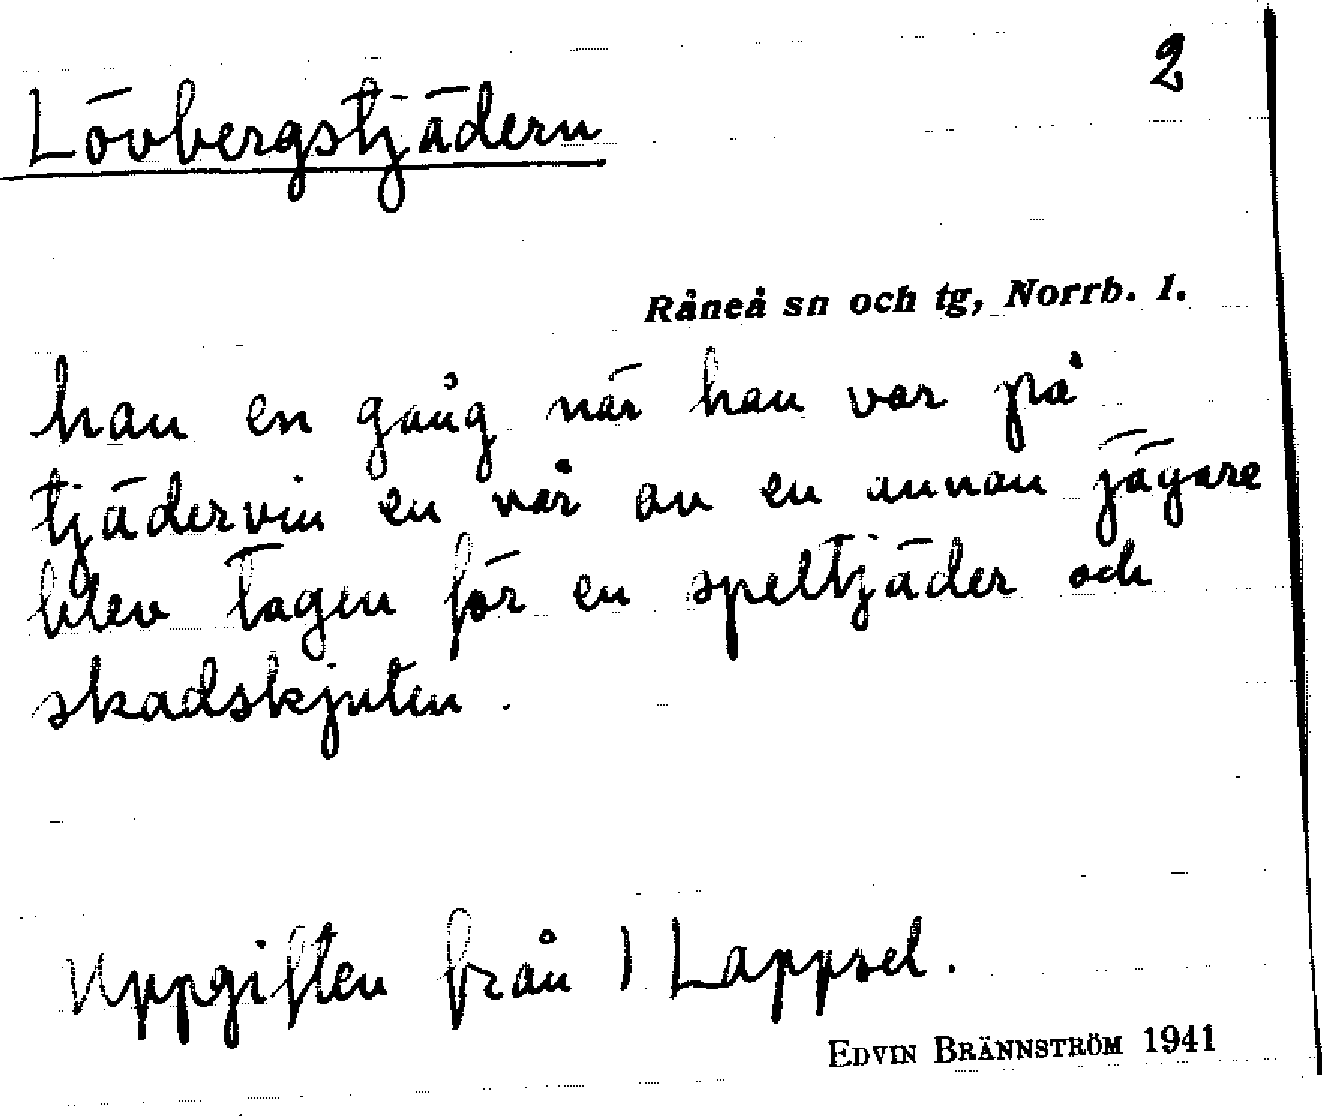 2
Lövbergstjädern
Råneå sn och tg, Norrb. l.
han en gång när han var på
tjädervin en vår av en annan jägare
blev tagen för en speltjäder och
skadskjuten.
Uppgiften från 1 Lappsel.
EDVIN BRÄNNSTRÖM 1941